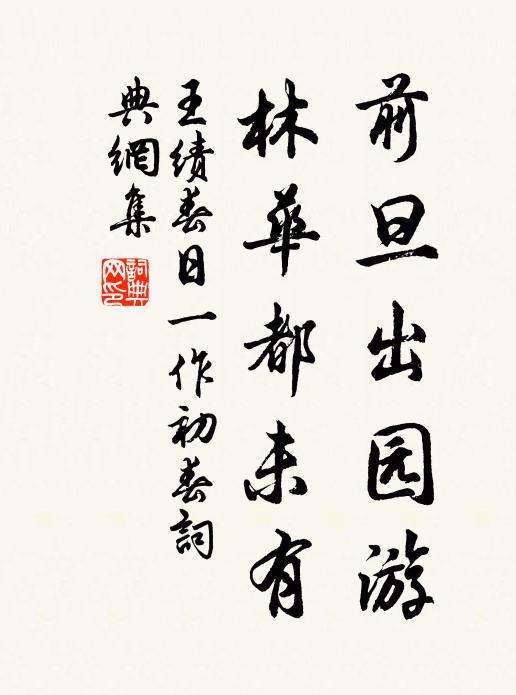 前旦出园游
林華都未有
王績春日一作初春詞
典網集
詞典
网印